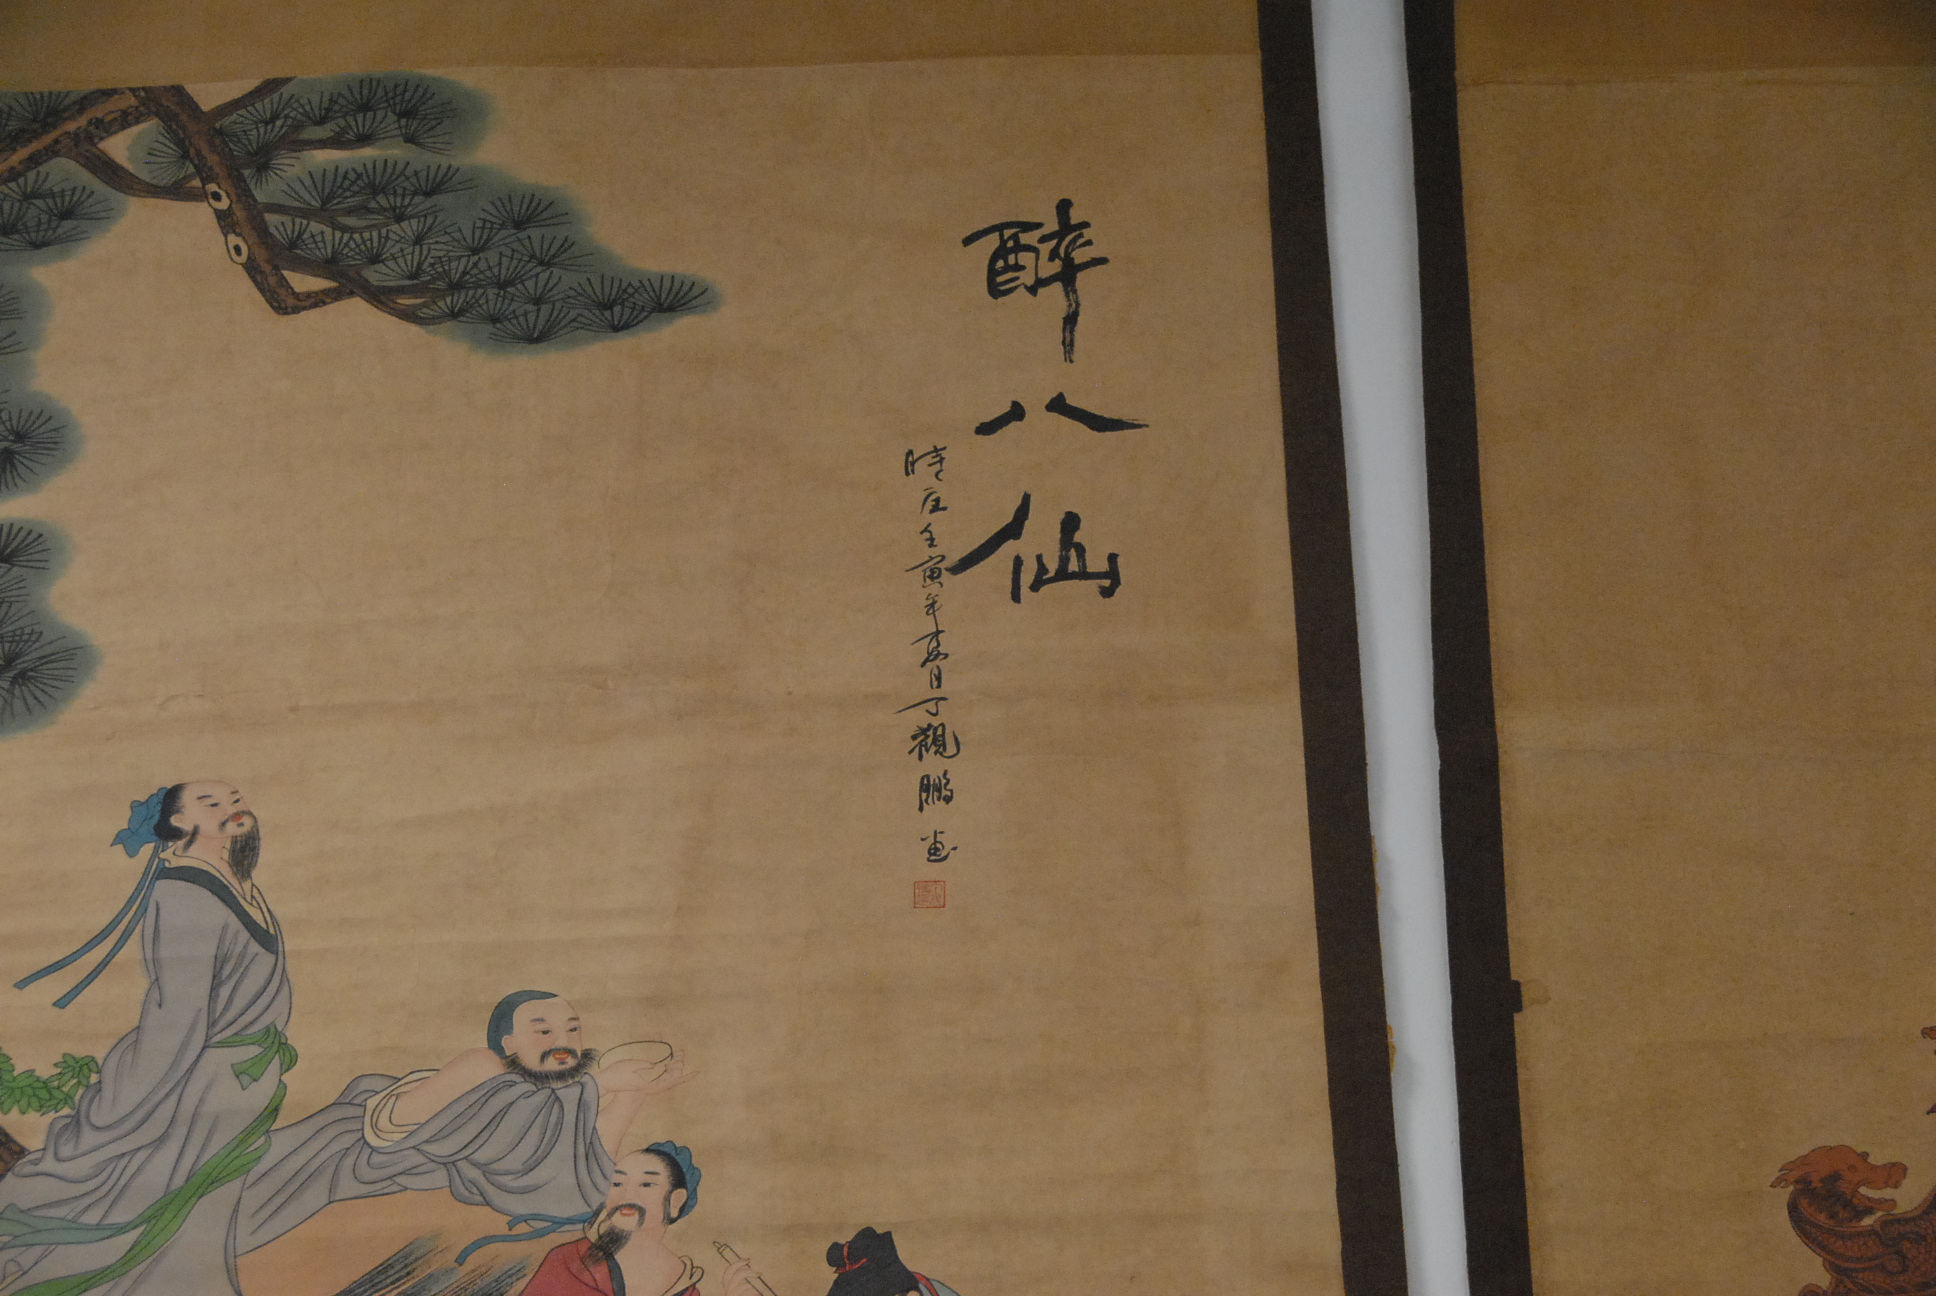 醉八仙
時在壬寅年夏月丁觀鵬画